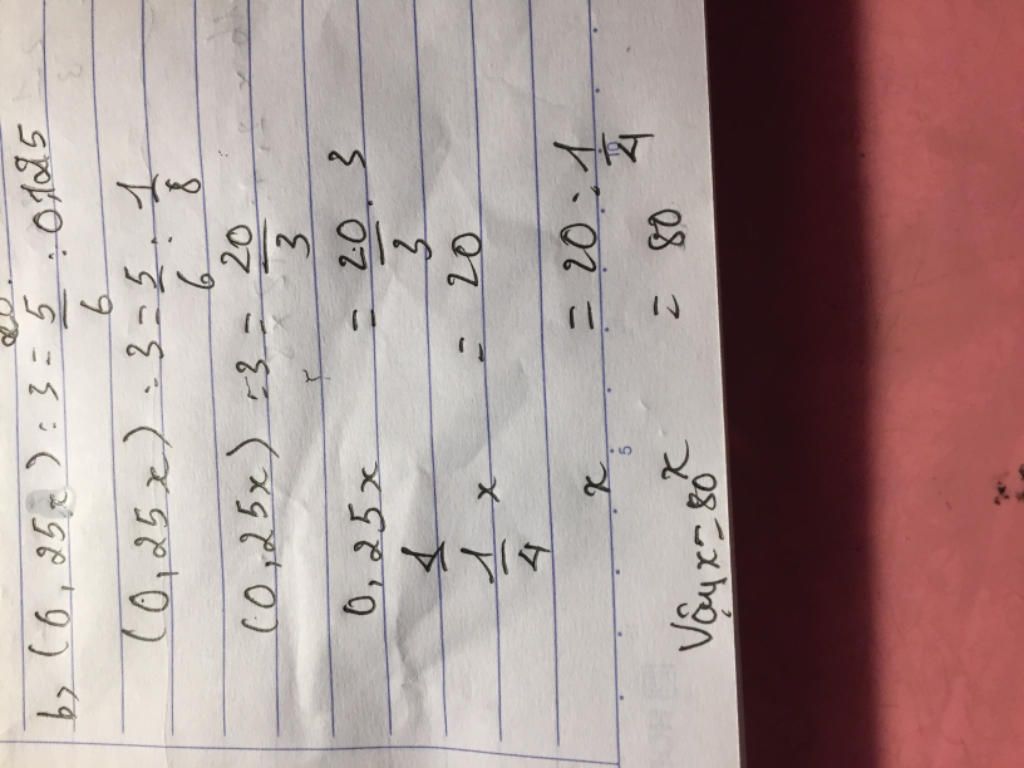 b, (0,25x) : 3 = 5/6 : 0,125
(0,25x) : 3 = 5/6 : 1/8
(0,25x) : 3 = 20/3
0,25x = 20/3 . 3
1/4 x = 20
x = 20 : 1/4
x = 80
Vậy x = 80